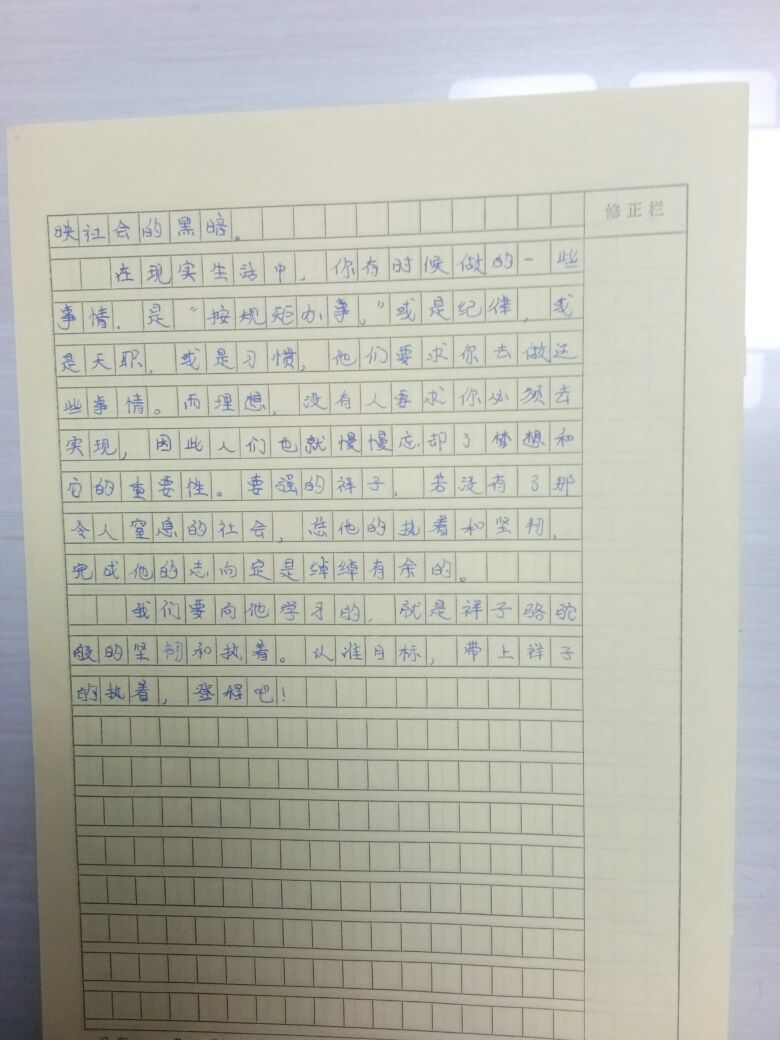 修正栏
映社会的黑暗。
在现实生活中，你有时候做的一些
事情，是“按规矩办事，”或是纪律，或
是天职，或是习惯，他们要求你去做这
些事情。而理想，没有人要求你必须去
实现，因此人们也就慢慢忘却了梦想和
它的重要性。要强的祥子，若没有了那
令人窒息的社会，凭他的执着和坚韧，
完成他的志向定是绰绰有余的。
我们要向他学习的，就是祥子骆驼
般的坚韧和执着。认准目标，带上祥子
的执着，登程吧！